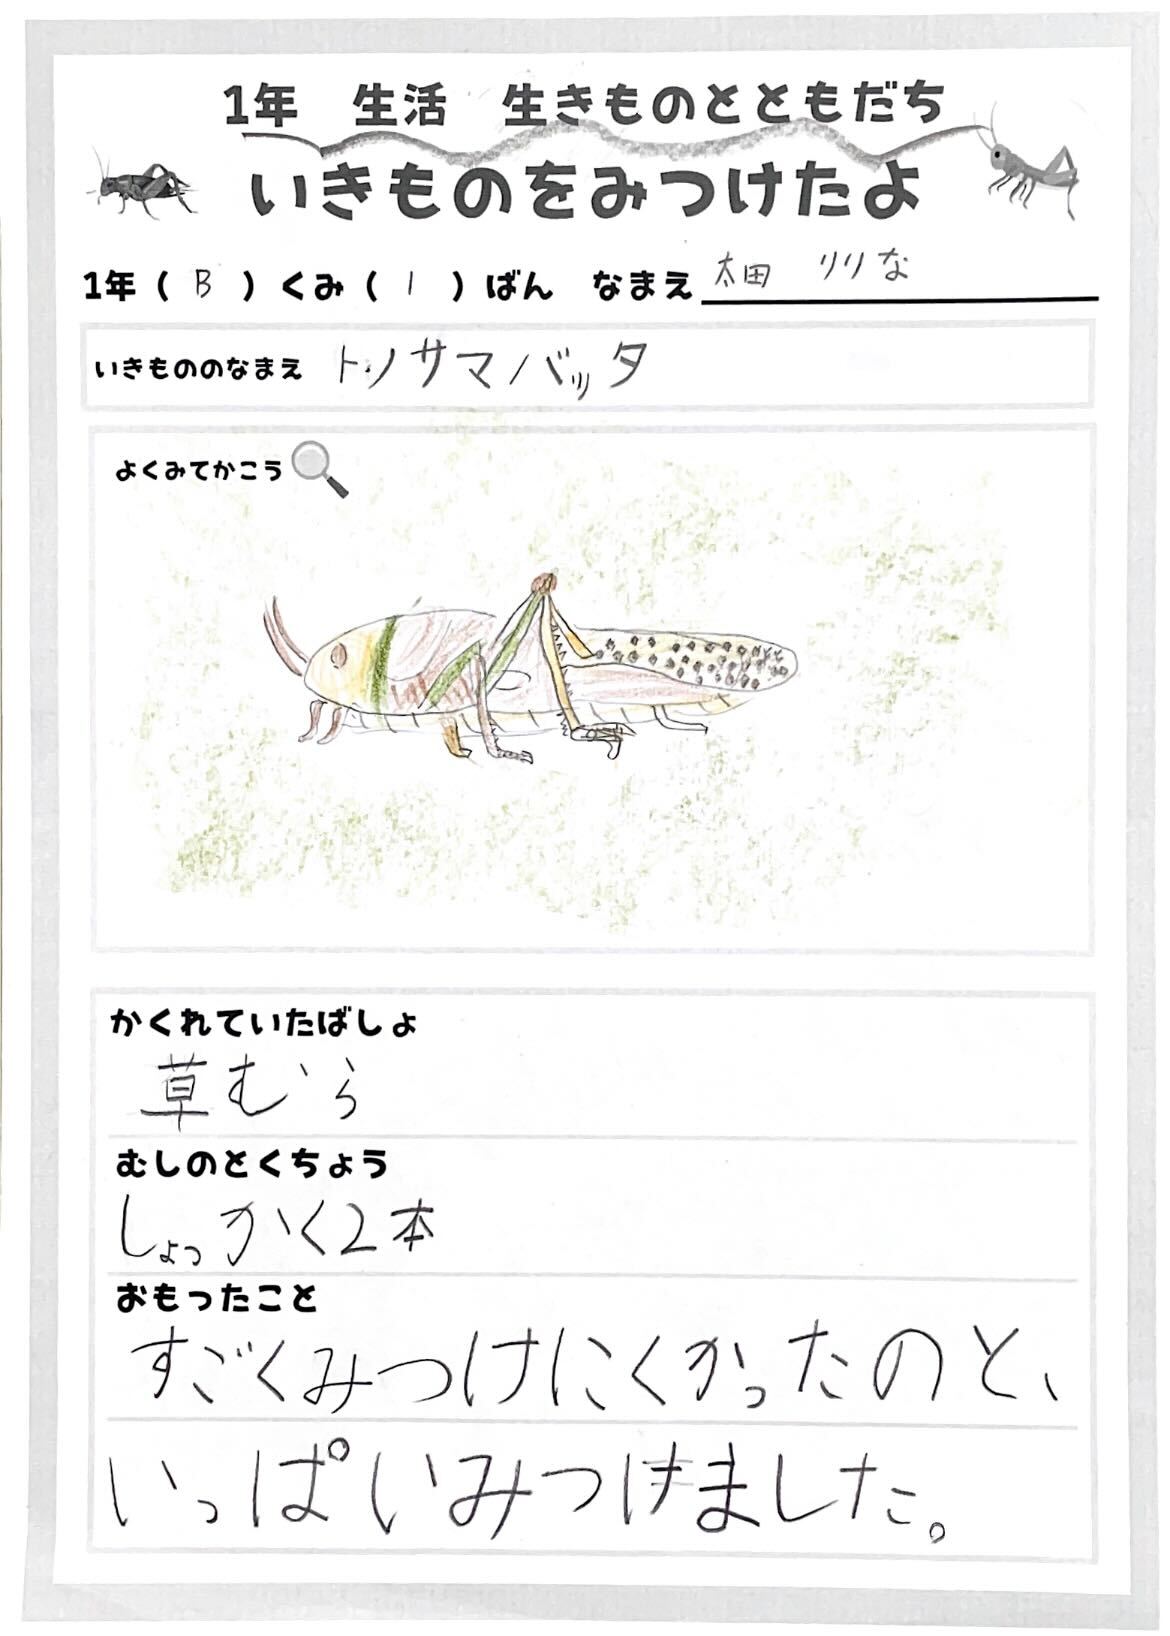 1年　生活　生きものとともだち
いきものをみつけたよ
1年（ B ）くみ（ 1 ）ばん　なまえ 太田　リリな
いきもののなまえ トノサマバッタ
よくみてかこう
かくれていたばしょ
草むら
むしのとくちょう
しょっかく2本
おもったこと
すごくみつけにくかったのと、
いっぱいみつけました。